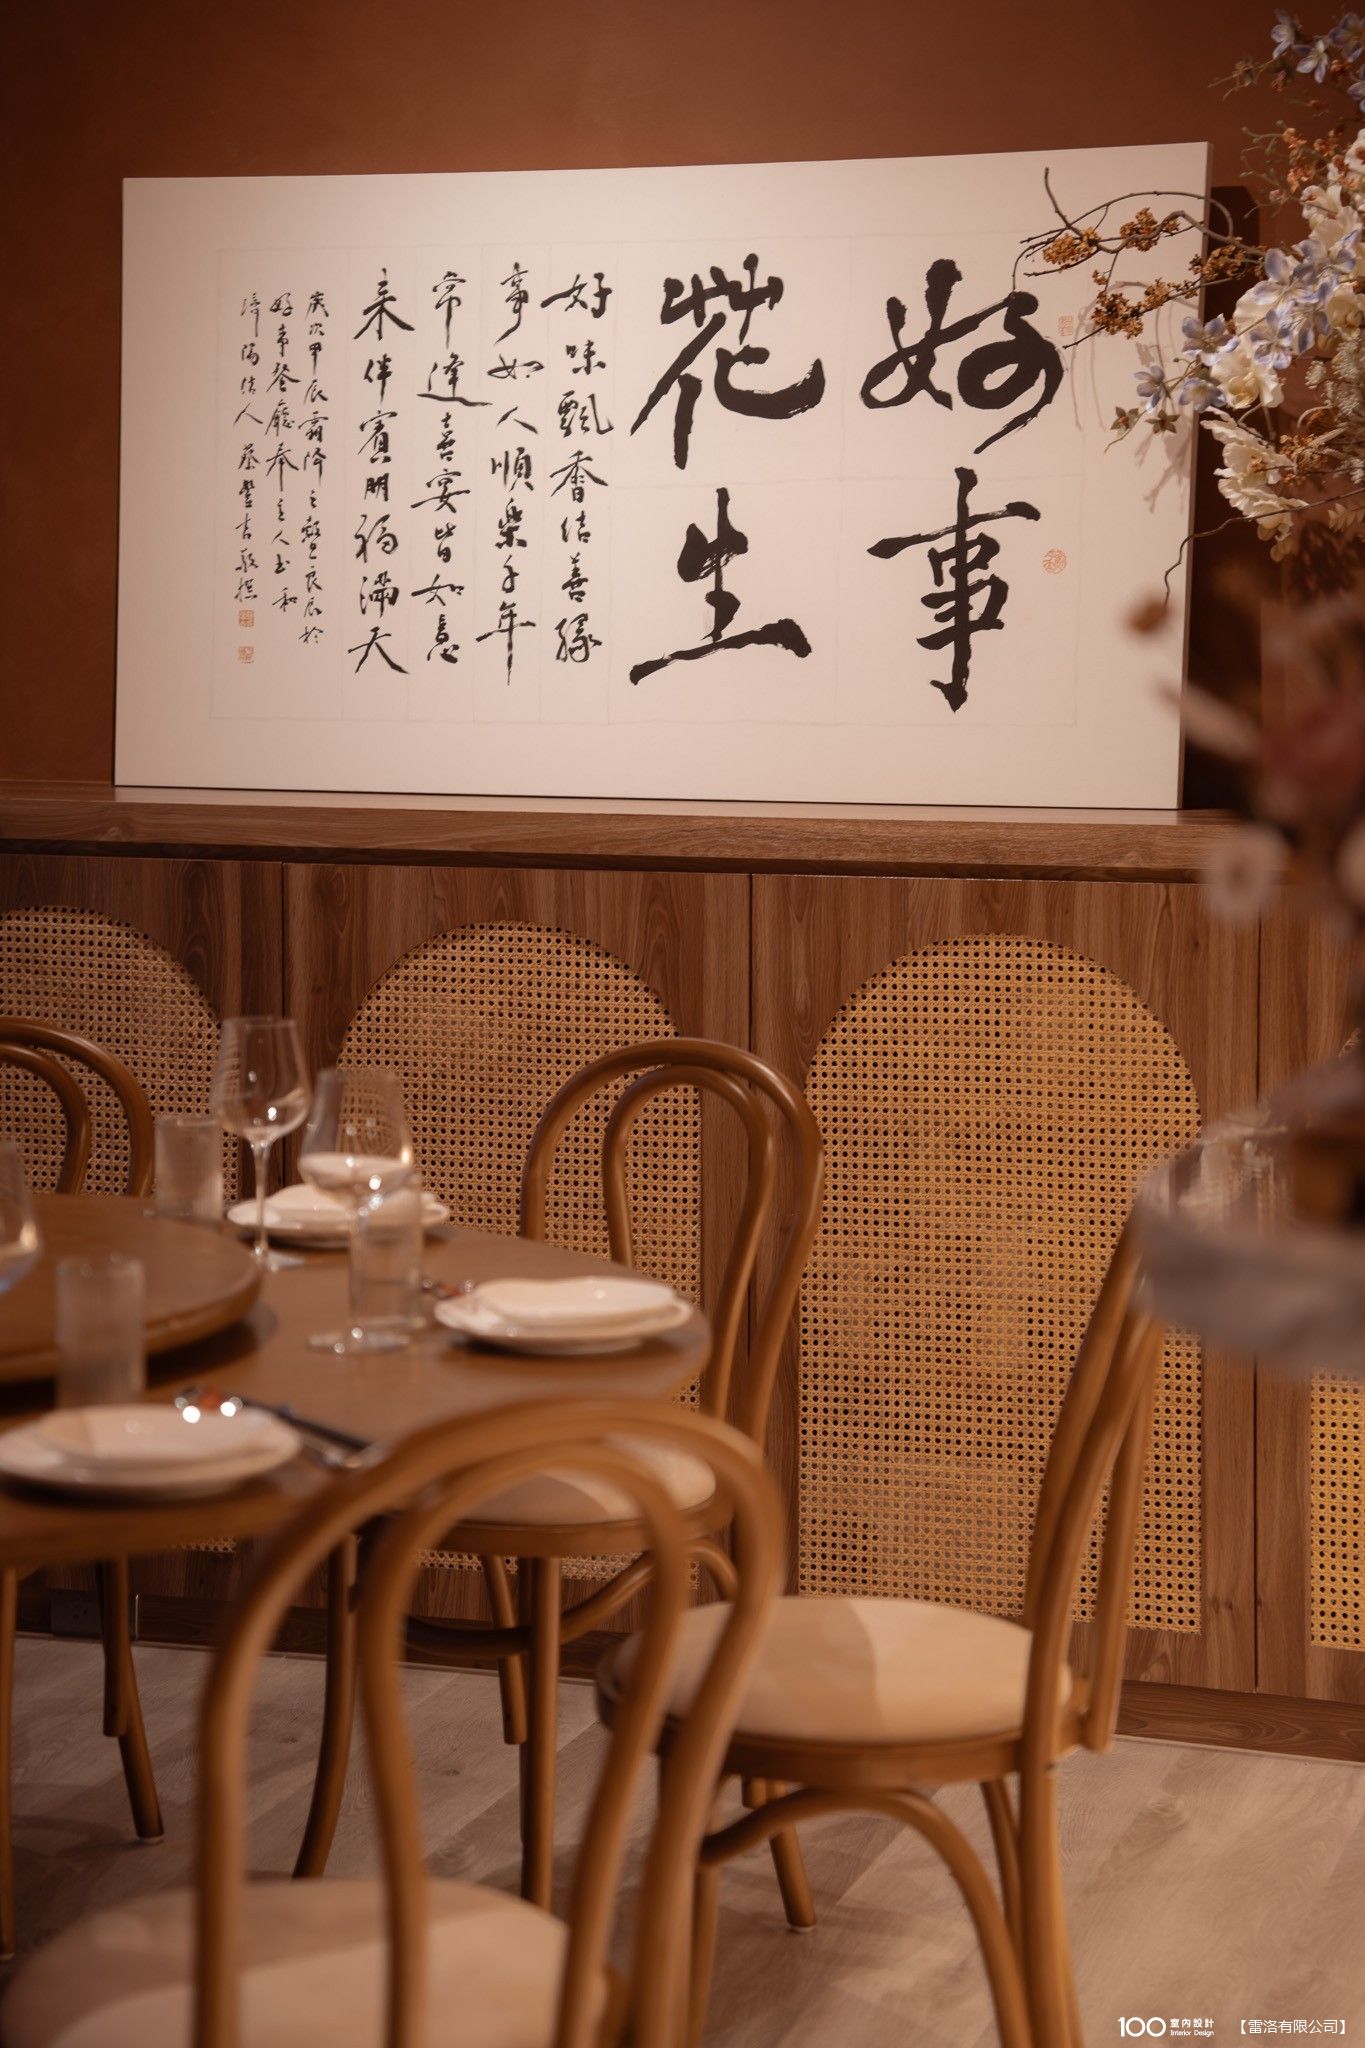 好事
花生
好味飄香結善緣
事如人順樂千年
常逢喜宴皆如意
来伴賓朋福滿天
歲次甲辰霜降之暨良辰於
好事餐廳奉主人玉和
蔡豐吉敬撰
100 室內設計 Interior Design 【雷洛有限公司】